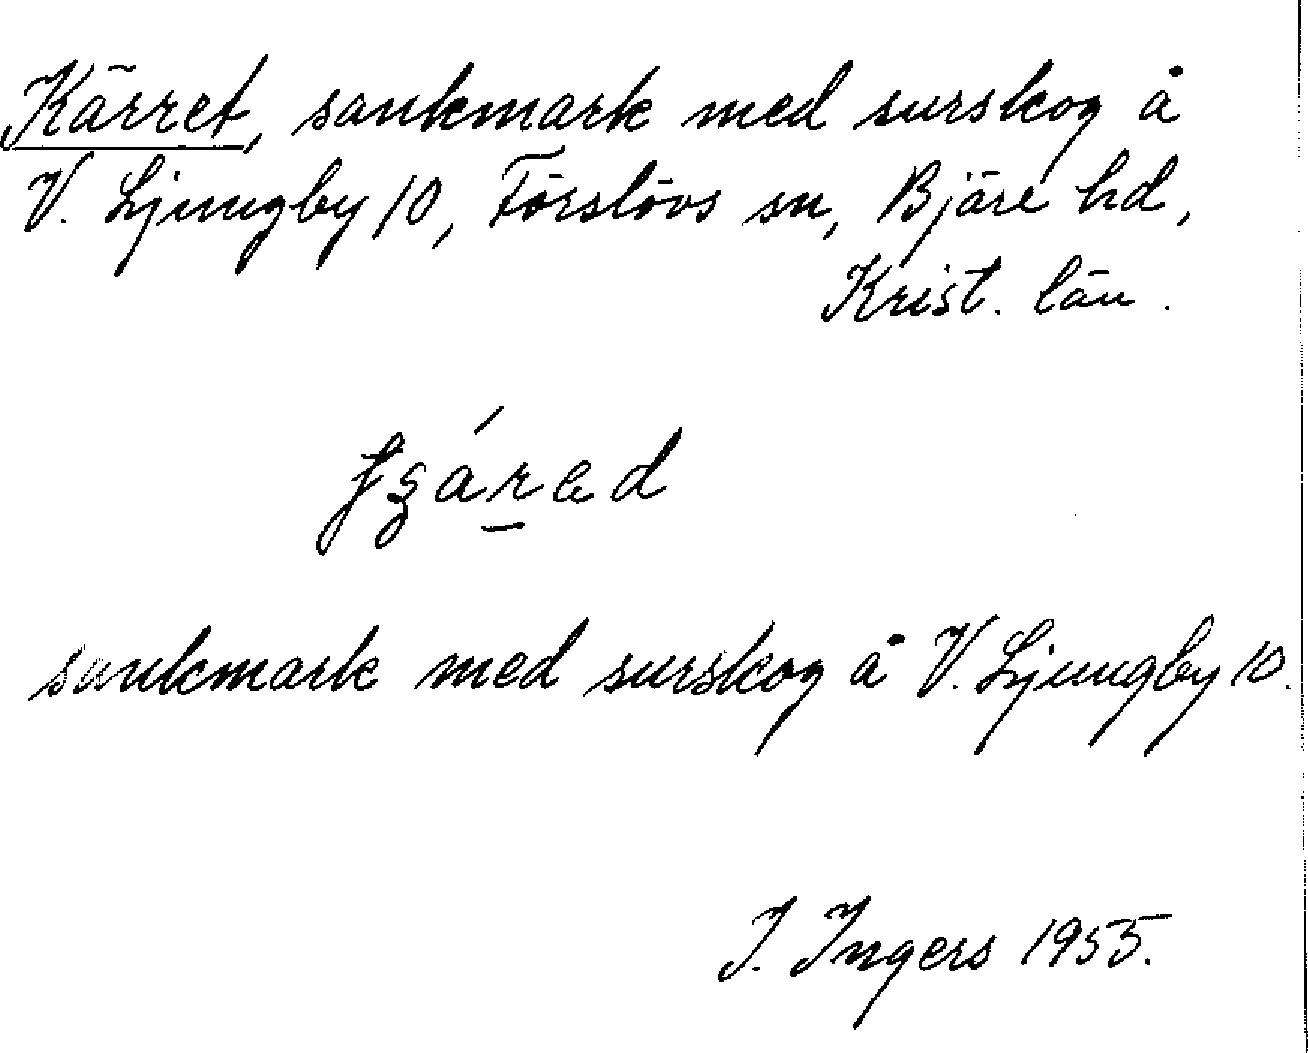 Kärret, sankmark med surskog å
V. Ljungby 10, Förslövs sn, Bjäre hd,
Krist. län.
sankmark med surskog å V. Ljungby 10.
I. Ingers 1955.